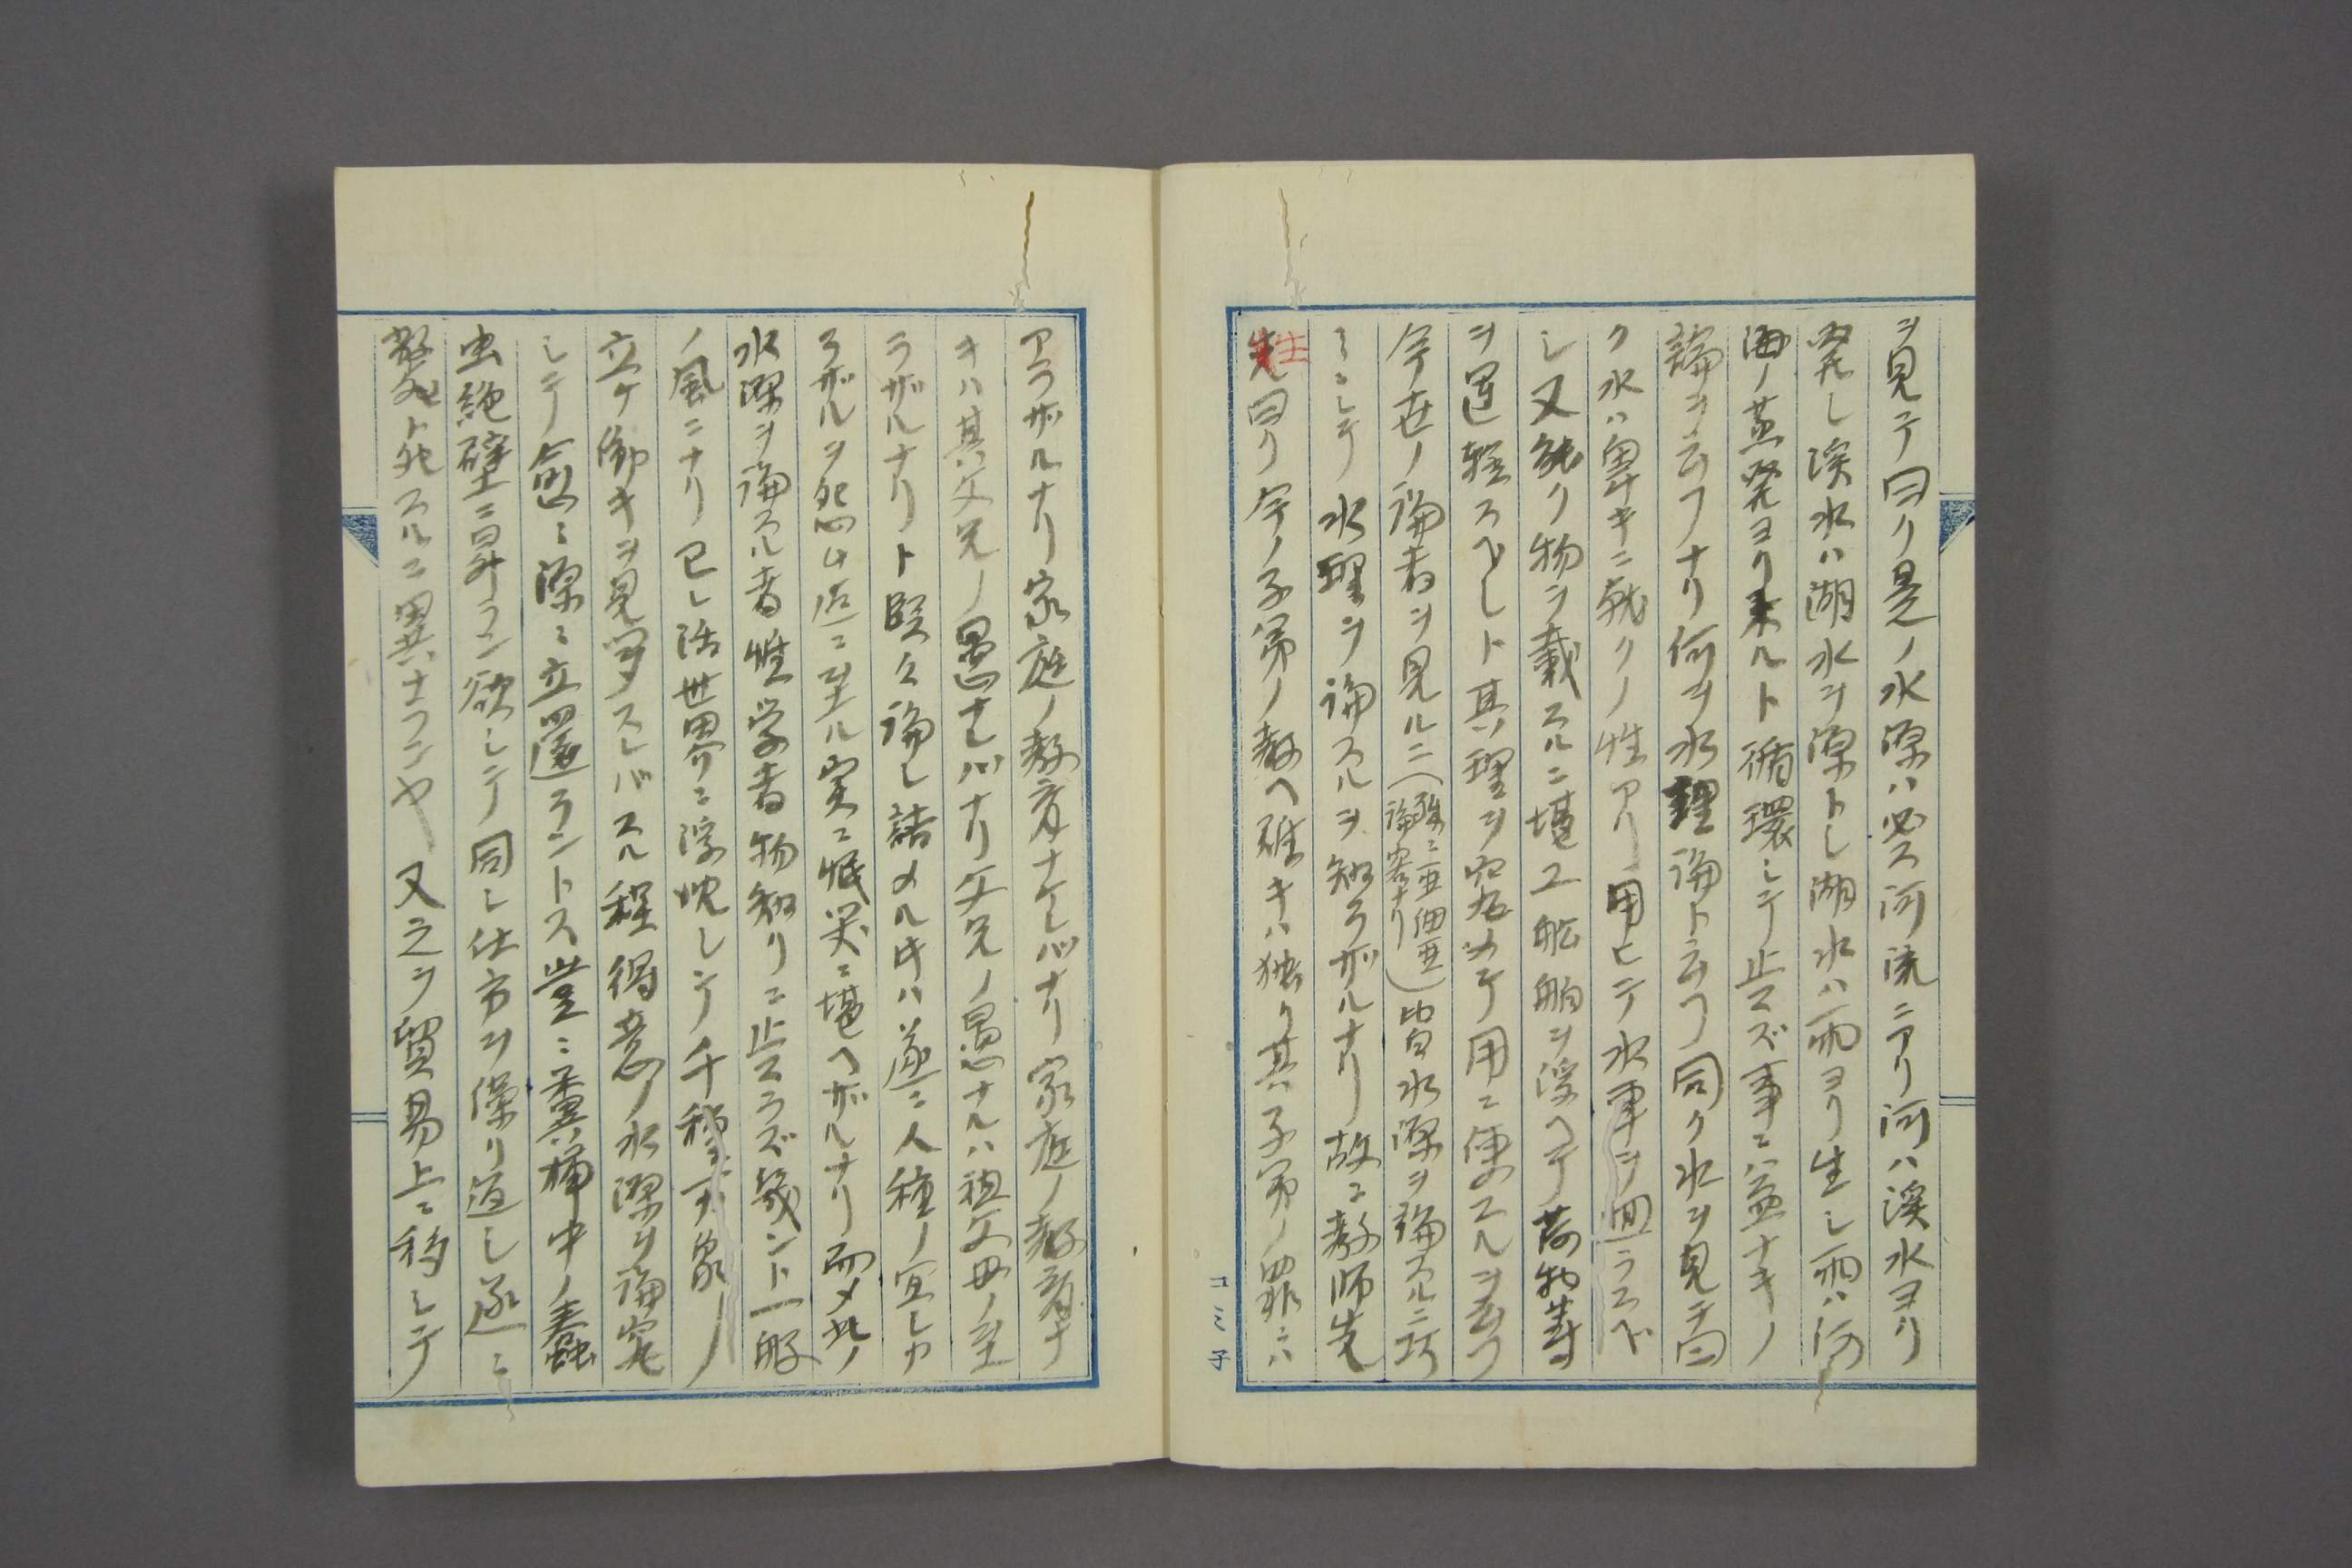 ヲ見テ曰ク是ノ水源ハ必ス河流ニアリ河ハ渓水ヨリ
発し渓水ハ湖水ヲ源トし湖水ハ雨ヨリ生し雨ハ河
海ノ蒸発ヨリ来ルト循環シテ止マズ事ニ益ナキノ
論ヲ云フナリ何ヲ水理論ト云フ同ク水ヲ見テ曰
ク水ハ卑キニ就クノ性アリ用ヒテ水車ヲ廻ラスベ
シ又能ク物ヲ載スルニ堪ユ船舶ヲ浮ヘテ荷物等
ヲ運輸スヘしト其理ヲ究メテ用ニ便スルヲ云フ
今世ノ論者ヲ見ルニ(殊ニ亜細亜
論客ナリ)皆水源ヲ論スルニ巧
ミニシテ水理ヲ論スルヲ知ラザルナリ故ニ教師先
生
曰ク今ノ子弟ノ教ヘ難キハ独リ其子弟ノ罪ニハ
コミ子
アラザルナリ家庭ノ教育ナケレバナリ家庭ノ教育ナ
キハ其父兄ノ愚ナレバナリ父兄ノ愚ナルハ祖父母ノ至
ラザルナリト段々論し詰メル時ハ遂ニ人種ノ宜しカ
ラザルヲ怨ムニ至ル実ニ憫笑ニ堪ヘザルナリ而メ此ノ
水源ヲ論スル者性学者物知リニ止マラズ幾ント一般
ノ風ニナリ已レ活世界ニ浮沈しテ千種万象ノ
立ケ働キヲ見聞スレバスル程得意ノ水源ヲ論究
シテ愈ミ源ニ立還ラントス豈ニ糞桶中ノ蠢
虫絶壁ニ昇ラン欲シテ同し仕方ヲ繰リ返し遂ニ
斃死スルニ異ナランヤ又之ヲ貿易上ニ移シテ